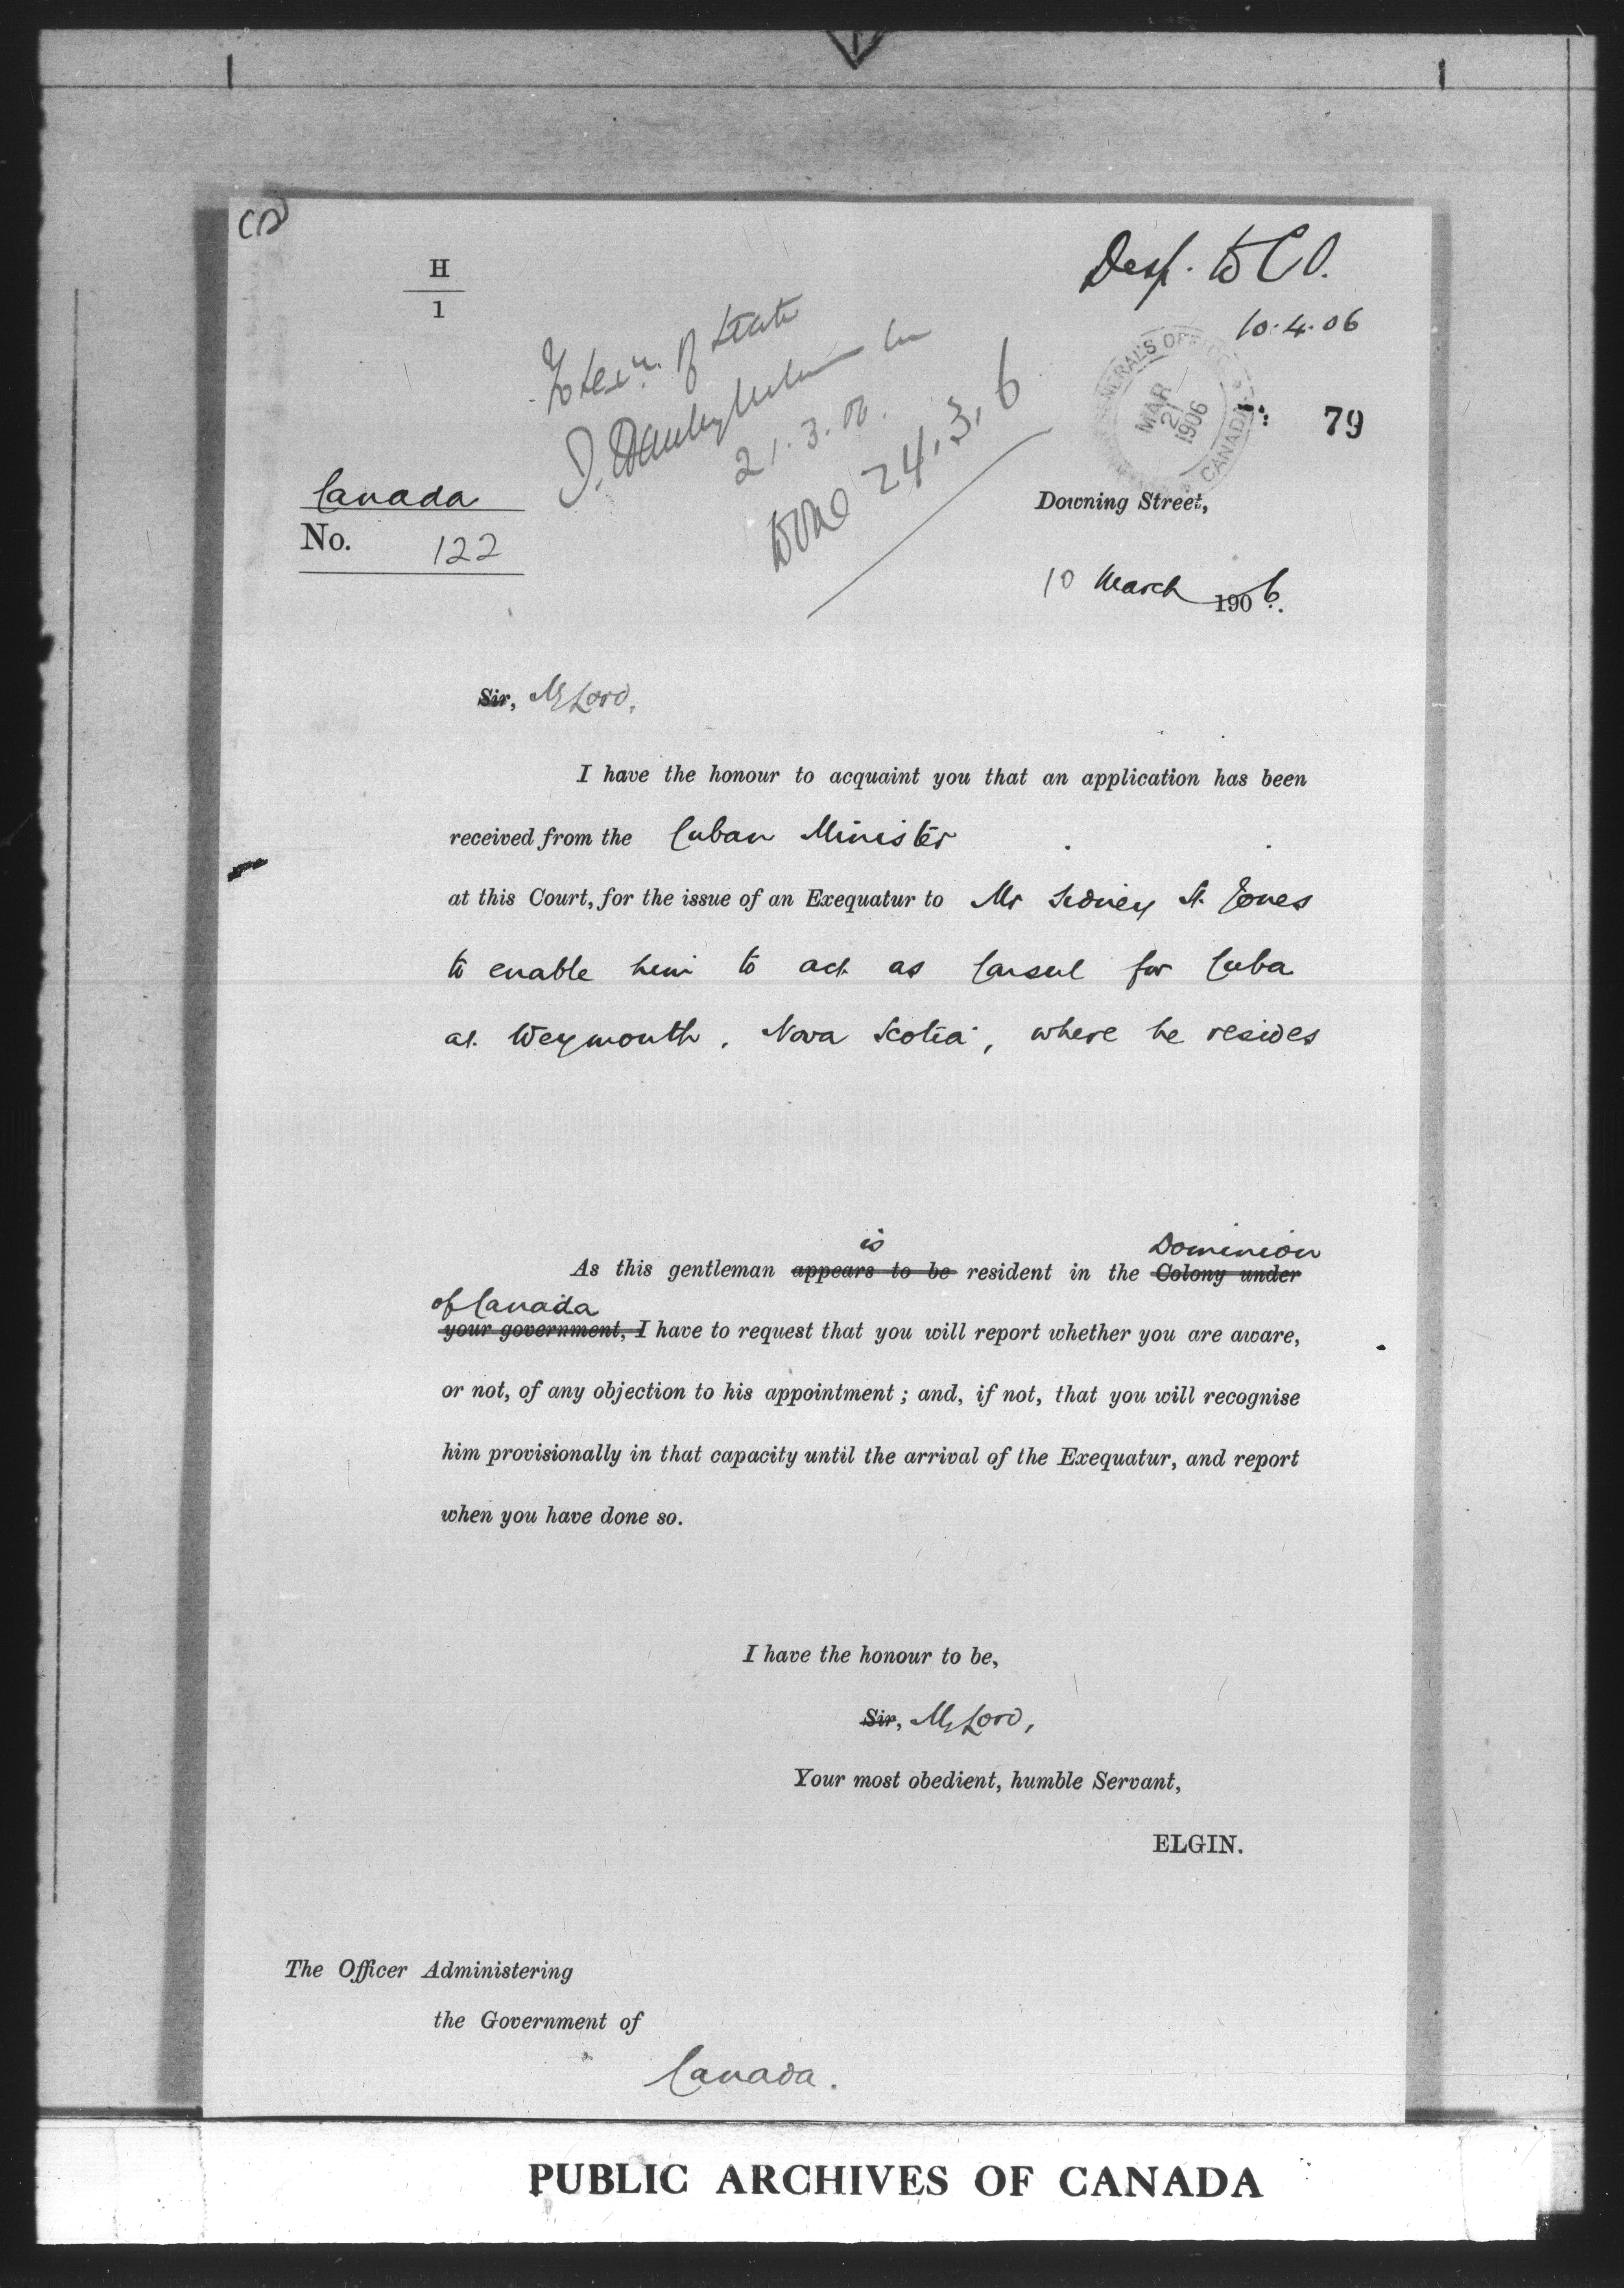 CD
H
1
Desp. to C O.
10.4.06
of State
21.3.06.
Done 24.3.6
GENERAL'S OFFICE
MAR
21
1906
CANADA
79
Canada
No. 122
Downing Street,
10 March 1906.
Sir, My Lord,
I have the honour to acquaint you that an application has been
received from the Cuban Minister
at this Court, for the issue of an Exequatur to Mr Sidney St. Jones
to enable him to act as Consul for Cuba
at Weymouth, Nova Scotia, where he resides
is Dominion
As this gentleman appears to be resident in the Colony under
of Canada
your government, I have to request that you will report whether you are aware,
or not, of any objection to his appointment; and, if not, that you will recognise
him provisionally in that capacity until the arrival of the Exequatur, and report
when you have done so.
I have the honour to be,
Sir, My Lord,
Your most obedient, humble Servant,
ELGIN.
The Officer Administering
the Government of
Canada.
PUBLIC ARCHIVES OF CANADA